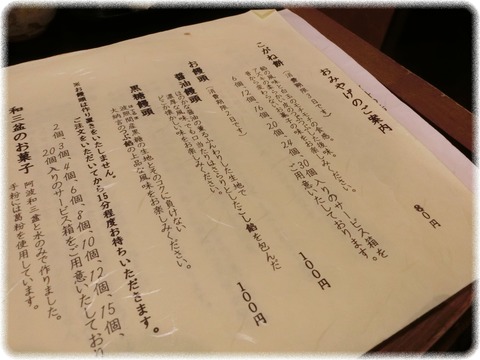 おみやげのご案内
こがね餅 80円
（消費期限3日です）
6個、12個、16個、20個、24個、30個入りのサービス箱を
ご用意いたしております。
お饅頭
（消費期限2日です）
醤油饅頭 100円
ほのかな醤油の薫るふんわりした生地でとしたこし餡を包んだ
黒糖饅頭 100円
波照間産黒糖の生地とそのコクに負けない
大納言のつぶ餡の上品な風味をお楽しみください。
※お饅頭は作り置きをいたしません。
ご注文をいただいてから15分程度お待ちいただきます。
2個、3個、4個、6個、8個、10個、12個、15個、
20個入りのサービス箱をご用意いたしており
和三盆のお菓子
阿波和三盆と水のみで作りました。
手粉には葛粉を使用しています。